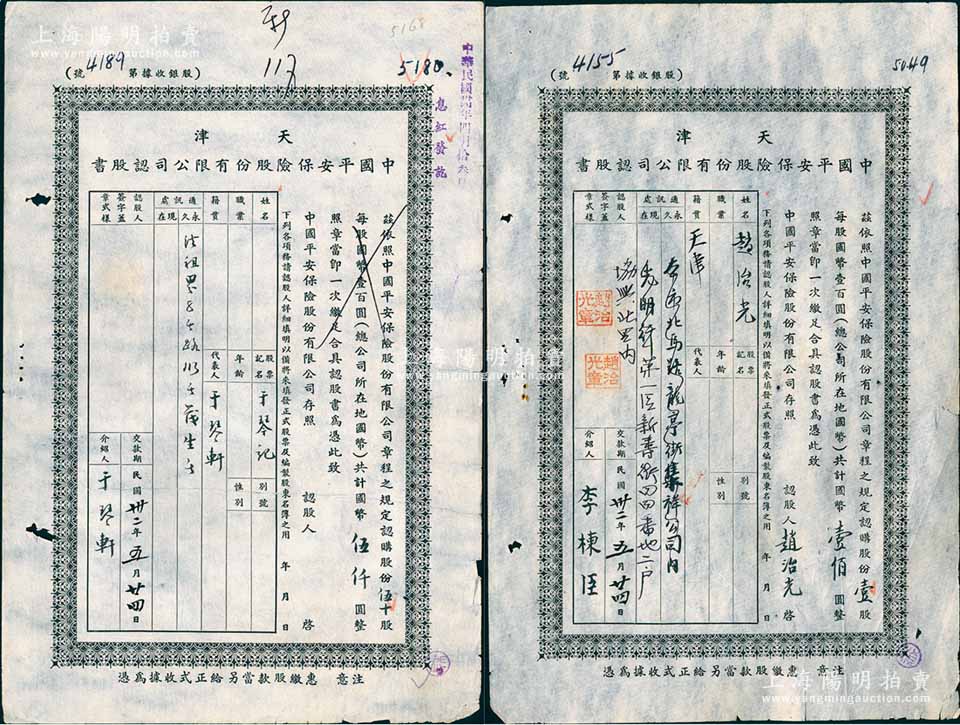 上海陽明拍賣
www.yangmingauction.com
5168
5180
股銀收據第4189號
中華民國卅四年四月拾
息紅發訖
天津
中國平安保險股份有限公司認股書
茲依照中國平安保險股份有限公司章程之規定認購股份伍十股
每股國幣壹百圓(總公司所在地國幣)共計國幣伍仟圓整
照章當卽一次繳足合具認股書為憑此致
中國平安保險股份有限公司存照
認股人 啓
年 月 日
下列各項務請認股人詳細填明以備將來填發正式股票及編製股東名簿之用
姓名
股票記名 于琴記
別號
職業
年齡
性別
籍貫
代表人 于琴軒
通訊處
永久
現在
認股人簽字蓋章式樣
交款期 民國卅二年五月廿四日
介紹人 于琴軒
注意 惠繳股款當另給正式收據為憑
上海陽明拍賣
5049
股銀收據第4155號
天津
中國平安保險股份有限公司認股書
茲依照中國平安保險股份有限公司章程之規定認購股份壹股
每股國幣壹百圓(總公司所在地國幣)共計國幣壹佰圓整
照章當卽一次繳足合具認股書為憑此致
中國平安保險股份有限公司存照
認股人趙治光啓
年 月 日
下列各項務請認股人詳細填明以備將來填發正式股票及編製股東名簿之用
姓名 趙治光
股票記名
別號
職業
年齡
性別
籍貫 天津
代表人
通訊處
永久
現在
認股人簽字蓋章式樣
趙治光章
趙治光章
交款期 民國卅二年五月廿四日
介紹人 李棟臣
注意 惠繳股款當另給正式收據為憑
上海陽明拍賣
www.yangmingauction.com